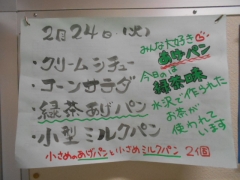 2月24日(火)
・クリームシチュー
・コーンサラダ
・緑茶あげパン
・小型ミルクパン
みんな大好き♡
あげパン
今日のは
緑茶味
水沢で作られた
お茶が
使われて
います
小さめのあげパンと小さめミルクパン 2個